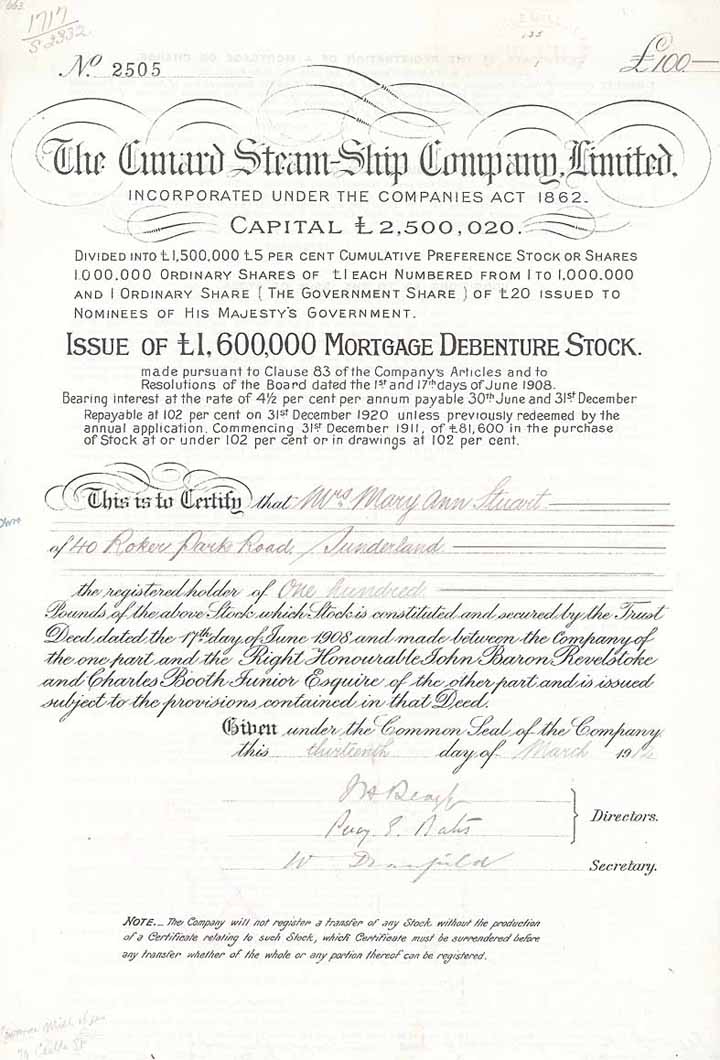 1717
S 2332
No. 2505
£100
The Cunard Steam-Ship Company, Limited.
INCORPORATED UNDER THE COMPANIES ACT 1862.
CAPITAL £2,500,020.
DIVIDED INTO £1,500,000 £5 PER CENT CUMULATIVE PREFERENCE STOCK OR SHARES
1.000.000 ORDINARY SHARES OF £1 EACH NUMBERED FROM 1 TO 1,000.000
AND 1 ORDINARY SHARE (THE GOVERNMENT SHARE) OF £20 ISSUED TO
NOMINEES OF HIS MAJESTY'S GOVERNMENT.
ISSUE OF £1,600,000 MORTGAGE DEBENTURE STOCK.
made pursuant to Clause 83 of the Company's Articles and to
Resolutions of the Board dated the 1st and 17th days of June 1908.
Bearing interest at the rate of 4½ per cent per annum payable 30th June and 31st December
Repayable at 102 per cent on 31st December 1920 unless previously redeemed by the
annual application. Commencing 31st December 1911, of £81,600 in the purchase
of Stock at or under 102 per cent or in drawings at 102 per cent.
This is to Certify that Mrs Mary Ann Stuart
of 40 Roker Park Road, Sunderland
the registered holder of One hundred
Pounds of the above Stock which Stock is constituted and secured by the Trust
Deed dated the 17th day of June 1908 and made between the Company of
the one part and the Right Honourable John Baron Revelstoke
and Charles Booth Junior Esquire of the other part and is issued
subject to the provisions contained in that Deed.
Given under the Common Seal of the Company
this thirteenth day of March 191
Percy E. Bates
Directors.
Secretary.
NOTE._ The Company will not register a transfer of any Stock without the production
of a Certificate relating to such Stock, which Certificate must be surrendered before
any transfer whether of the whole or any portion thereof can be registered.